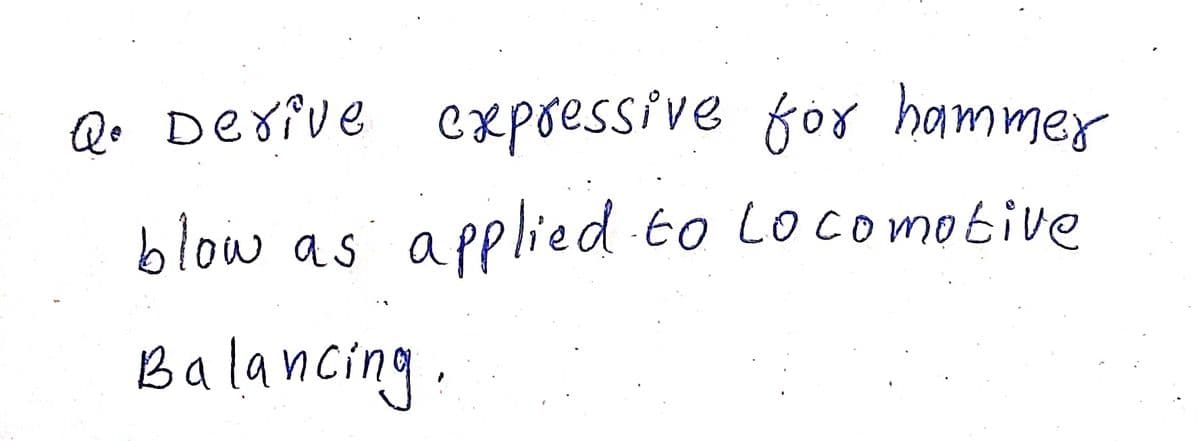 Q. Derive expressive for hammer
blow as applied to Locomotive
Balancing.